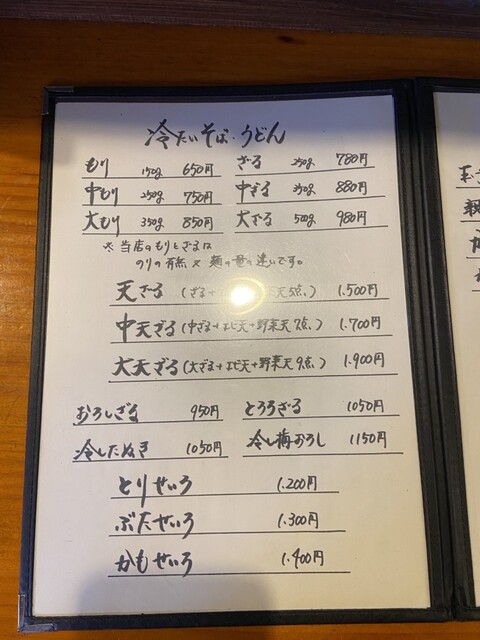 冷たいそば・うどん
もり 150g 650円 ざる 250g 780円
中もり 250g 750円 中ざる 350g 880円
大もり 350g 850円 大ざる 500g 980円
※当店のもりとざるは
のりの有無×麺の量の違いです。
天ざる (ざる+ 天5点) 1.500円
中天ざる (中ざる+エビ天+野菜天7点) 1.700円
大天ざる (大ざる+エビ天+野菜天9点) 1.900円
おろしざる 950円 とろろざる 1050円
冷したぬき 1050円 冷し梅おろし 1150円
とりせいろ 1.200円
ぶたせいろ 1.300円
かもせいろ 1.400円